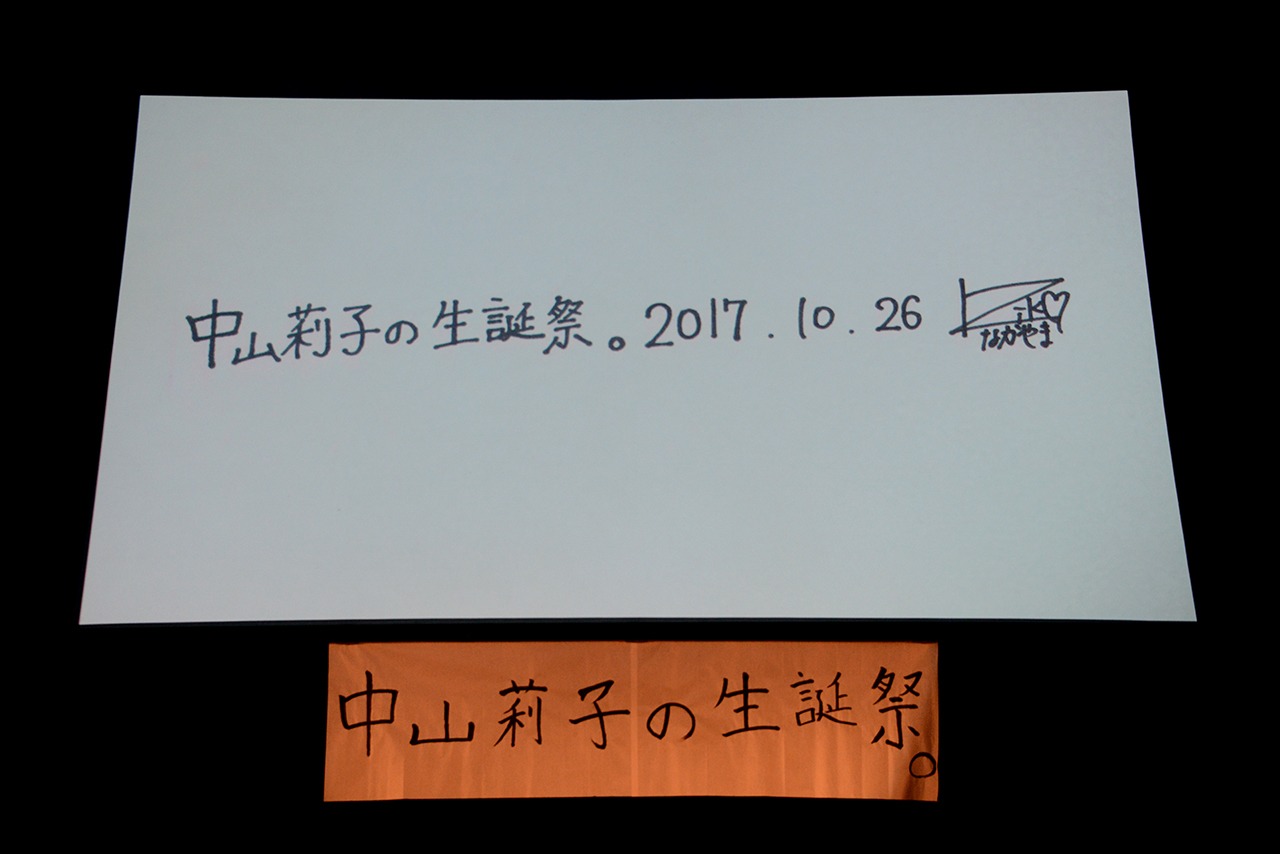 中山莉子の生誕祭。2017.10.26
なかやま
中山莉子の生誕祭。